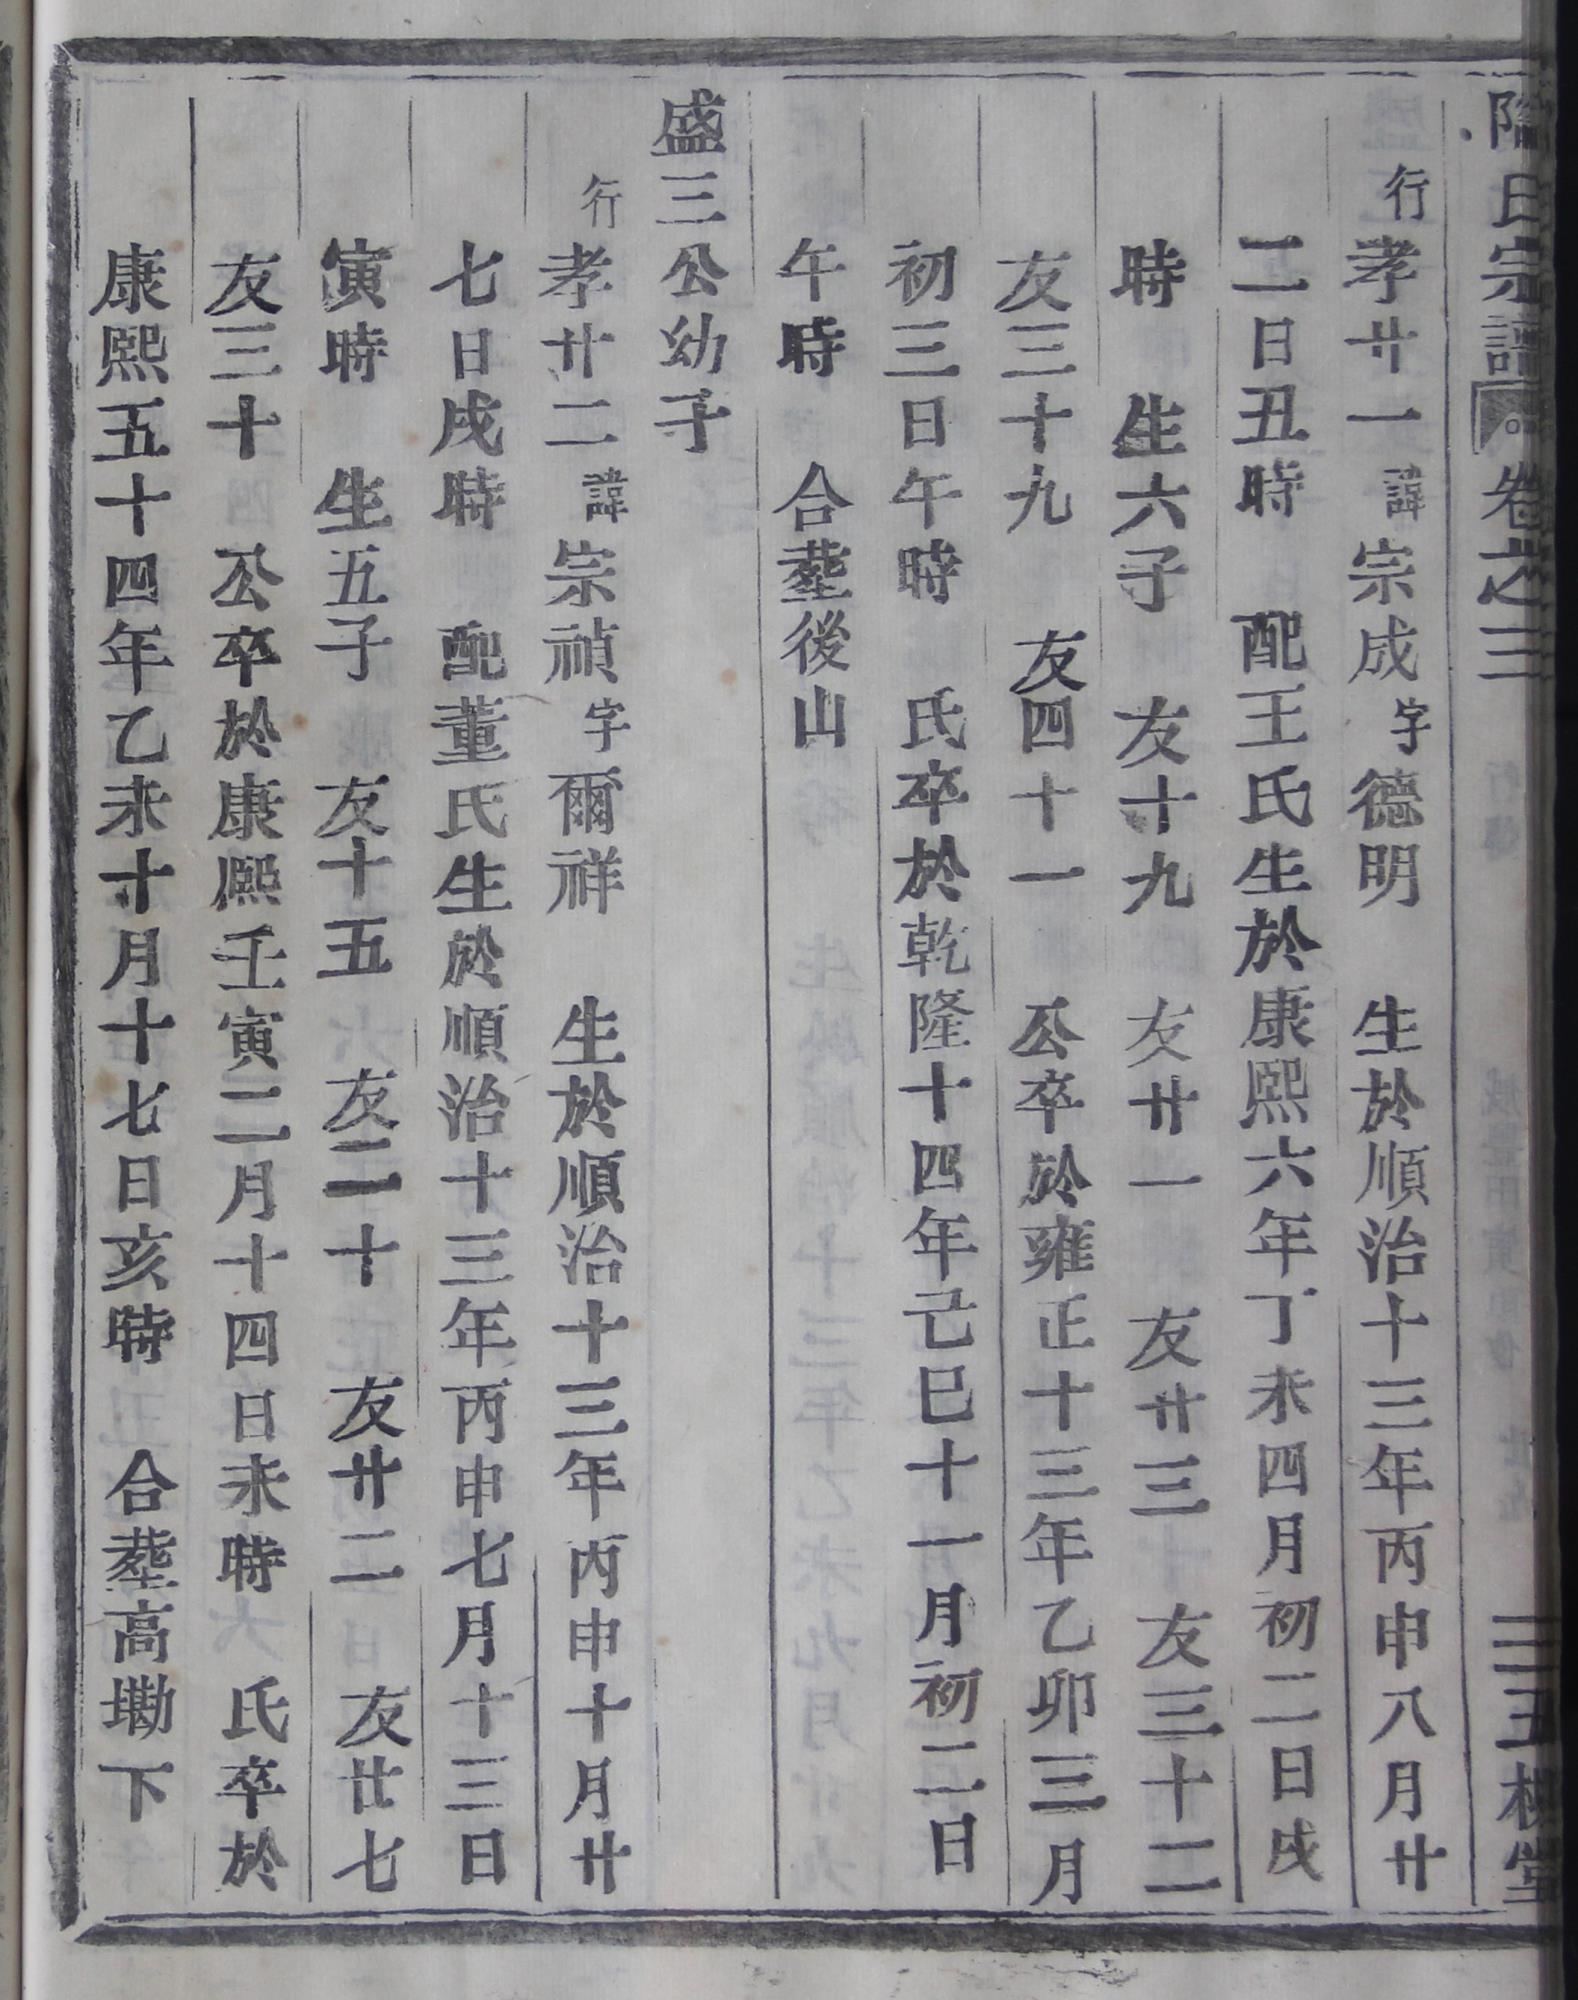 陶氏宗譜 卷之三 三五柳堂
行孝廿一 諱宗成 字德明 生於順治十三年丙申八月廿
二日丑時 配王氏生於康熙六年丁未四月初二日戌
時 生六子 友十九 友廿一 友廿三 友三十二
友三十九 友四十一 公卒於雍正十三年乙卯三月
初三日午時 氏卒於乾隆十四年己巳十一月初二日
午時 合塟後山
盛三公幼子
行孝廿二 諱宗禎 字爾祥 生於順治十三年丙申十月廿
七日戌時 配董氏生於順治十三年丙申七月十三日
寅時 生五子 友十五 友二十 友廿二 友廿七
友三十 公卒於康熙壬寅二月十四日未時 氏卒於
康熙五十四年乙未十月十七日亥時 合塟高墈下